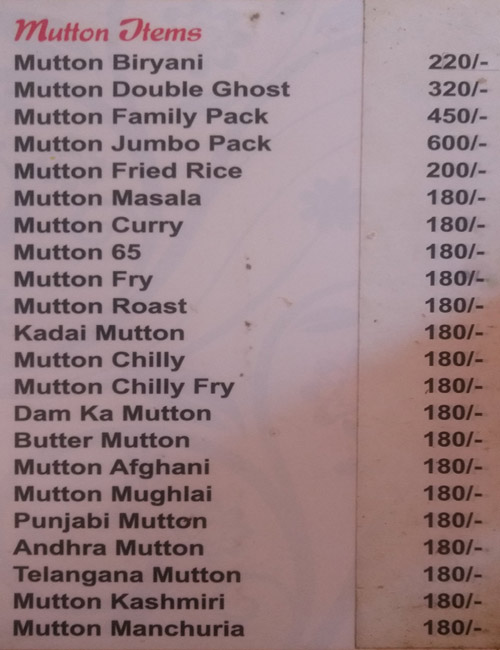 Mutton Items
Mutton Biryani 220/-
Mutton Double Ghost 320/-
Mutton Family Pack 450/-
Mutton Jumbo Pack 600/-
Mutton Fried Rice 200/-
Mutton Masala 180/-
Mutton Curry 180/-
Mutton 65 180/-
Mutton Fry 180/-
Mutton Roast 180/-
Kadai Mutton 180/-
Mutton Chilly 180/-
Mutton Chilly Fry 180/-
Dam Ka Mutton 180/-
Butter Mutton 180/-
Mutton Afghani 180/-
Mutton Mughlai 180/-
Punjabi Mutton 180/-
Andhra Mutton 180/-
Telangana Mutton 180/-
Mutton Kashmiri 180/-
Mutton Manchuria 180/-